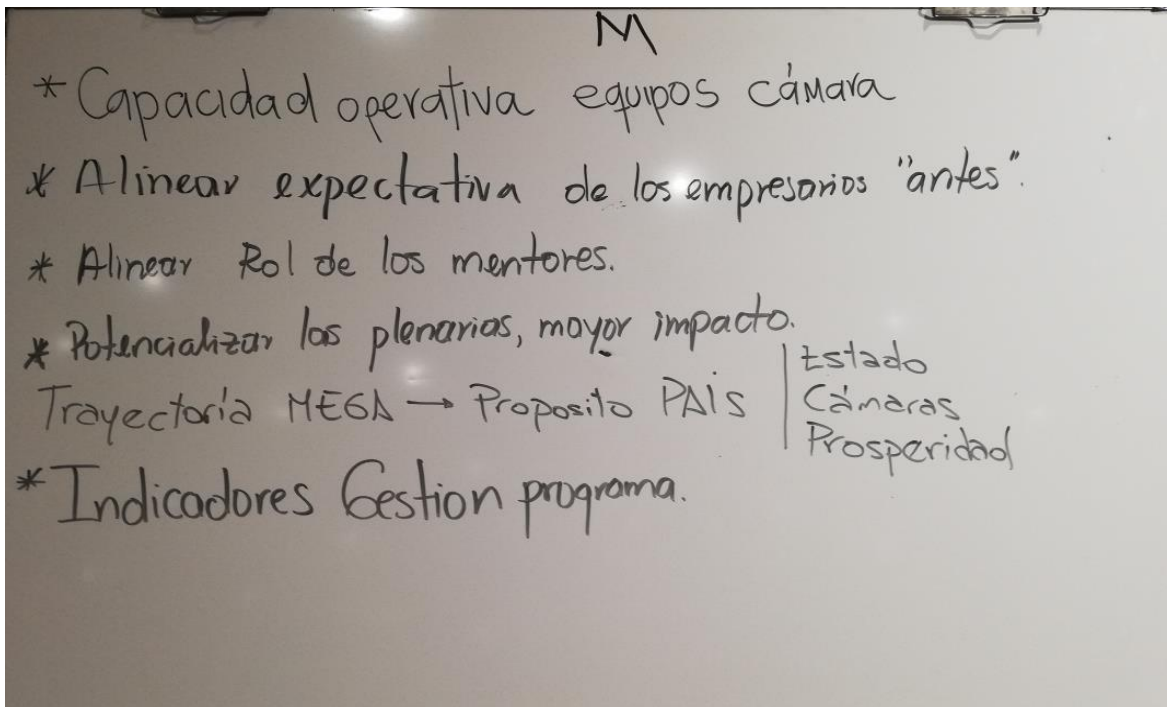 M
* Capacidad operativa equipos cámara
* Alinear expectativa de los empresarios "antes".
* Alinear Rol de los mentores.
* Potencializar las plenarias, mayor impacto.
Trayectoria MEGA → Proposito PAIS | Estado
Cámaras
Prosperidad
* Indicadores Gestion programa.